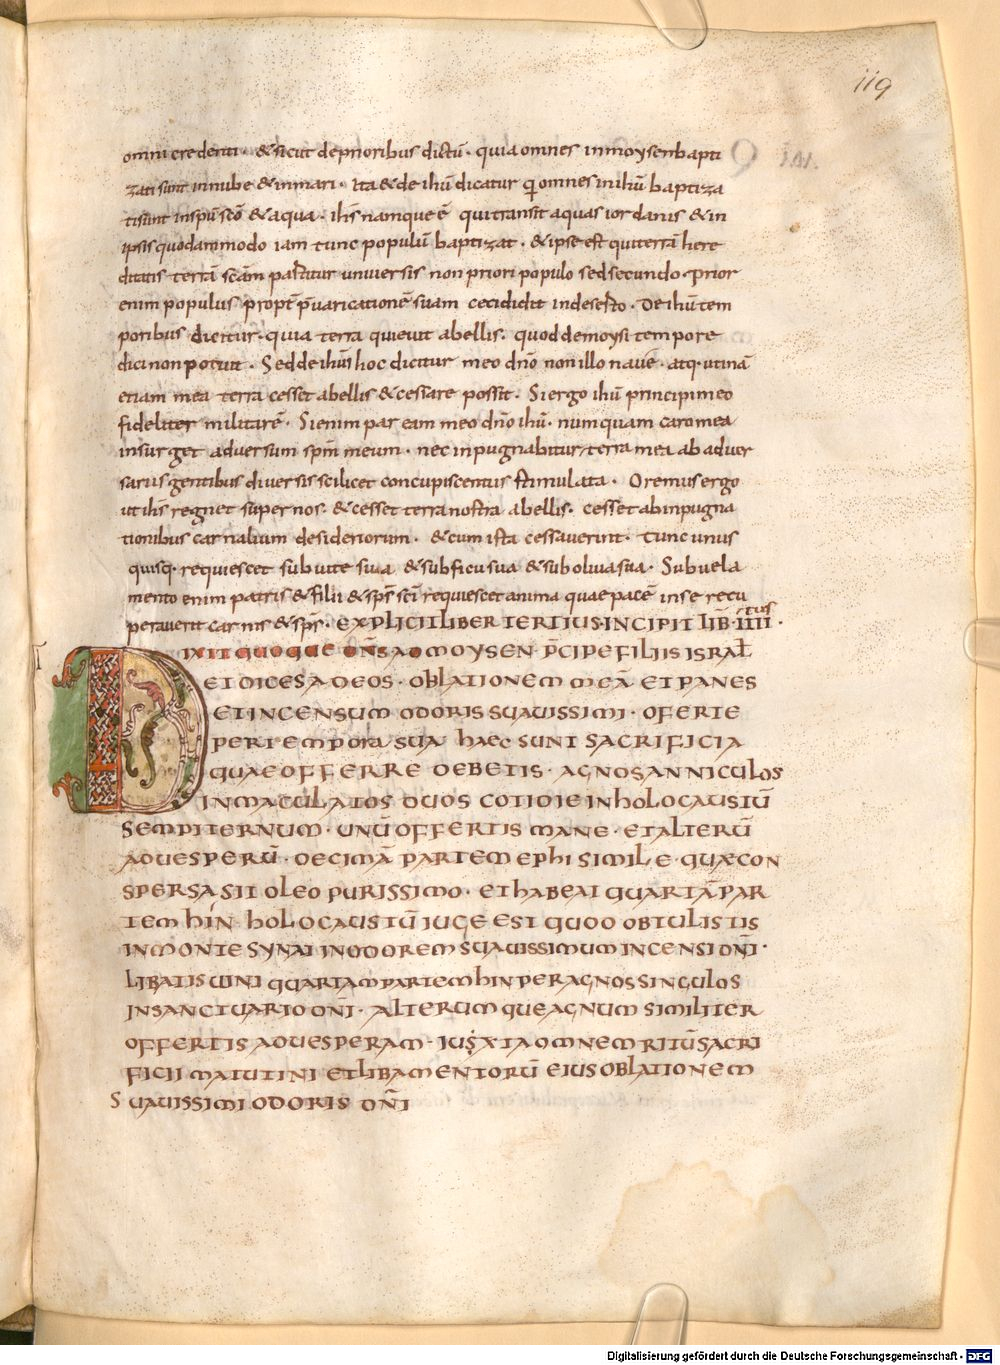 119
omni credenti · & sicut deprioribus dictū · quia omnes inmoysenbapti
zati sunt innube & inmari · Ita & de ihū dicatur qi omnes in ihū baptiza
ti sunt inspū scō & aqua · ihs namque ē qui transit aquas iordanis & in
ipsis quodammodo iam tunc populū baptizat · & ipse est qui terrā here
ditatis terrā scām partitur universis non priori populo sed secundo · prior
enim populus propt p̄uaricationē suam cecididit indeserto · De ihū tem
poribus dicitur · quia terra quieuit abellis · quod demoysi tempore
dici non potuit · Sed de ihū hoc dicitur meo dn̄o non illo nauē · atq· utinā
etiam mea terra cesset abellis & cessare possit · Si ergo ihū principi meo
fideliter militarē · Si enim paream meo dn̄o ihū · numquam caro mea
insurget aduersum spm̄ meum · nec inpugnabitur terra mea ab aduer
sariis gentibus diuersis scilicet concupiscentiis stimulata · Oremus ergo
ut ihs regnet super nos · & cesset terra nostra abellis · cesset abinpugna
tionibus carnalium desideriorum · & cum ista cessauerint · tunc unus
quisq· requiescet sub uite sua & sub ficu sua & sub oliua sua · Sub uela
mento enim patris & filii & sp̄s sc̄i requiescet anima quae pacē in se recu
perauerit carnis & sp̄s · EXPLICIT LIBER TERTIUS · INCIPIT LIB̄ · IIII tus ·
DIXIT QUOQUE DN̄S AD MOYSEN · P̄CIPE FILIIS ISRAL̄
ET DICES AD EOS · OBLATIONEM MEĀ ET PANES
ET INCENSUM ODORIS SUAUISSIMI · OFERTE
PER TEMPORA SUA HAEC SUNT SACRIFICIA
QUAE OFFERRE DEBETIS · AGNOS ANNICULOS
INMACULATOS DUOS COTIDIE IN HOLOCAUSTŪ
SEMPITERNUM · UNŪ OFFERTIS MANE · ET ALTERŪ
AD UESPERŪ · DECIMĀ PARTEM EPHI SIMILE · QUAE CON
SPERSA SIT OLEO PURISSIMO · ET HABEAT QUARTĀ PAR
TEM HIN · HOLOCAUSTŪ IUGE EST QUOD OBTULISTIS
IN MONTE SYNAI IN ODOREM SUAUISSIMUM INCENSI DN̄I ·
LIBATIS UINI QUARTAM PARTEM HIN PER AGNOS SINGULOS
IN SANCTUARIO DN̄I · ALTERUM QUE AGNUM SIMILITER
OFFERTIS AD UESPERAM · IUSXTA OMNEM RITŪ SACRI
FICII MATUTINI ET LIBAMENTORŪ EIUS OBLATIONEM
SUAUISSIMI ODORIS DN̄I
Digitalisierung gefördert durch die Deutsche Forschungsgemeinschaft - DFG